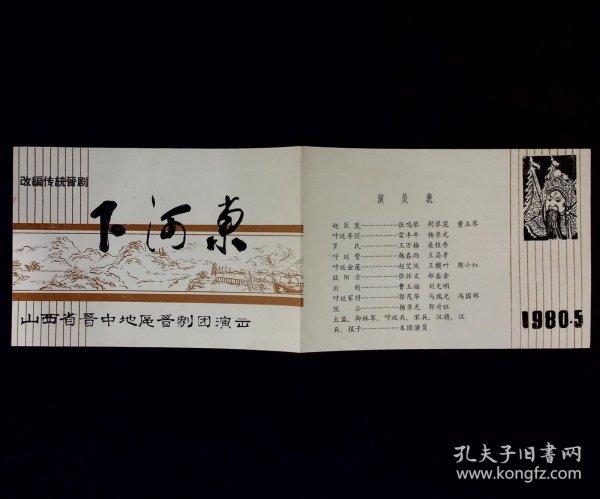 改編传統晋剧
下河东
山西省晋中地区晋剧团演出
演员表
赵匡胤…………张鸣琴 荆翠花 董玉琴
呼延寿廷…………雷丰年 杨录光
罗氏…………王万梅 桑桂香
呼延赞…………韩春雨 王昌孝
呼延金莲…………赵艾凤 王 叶 周小红
欧阳方…………张怀文 郝鑫金
刘钧…………曹玉福 刘光明
呼延家将…………郭茂华 马瑞光 冯国辉
院公…………杨录光 郭升旺
太监、御林军、呼延兵、宋兵、汉将、汉
兵、报子…………本团演员
1980.5
孔夫子旧书网
www.kongfz.com